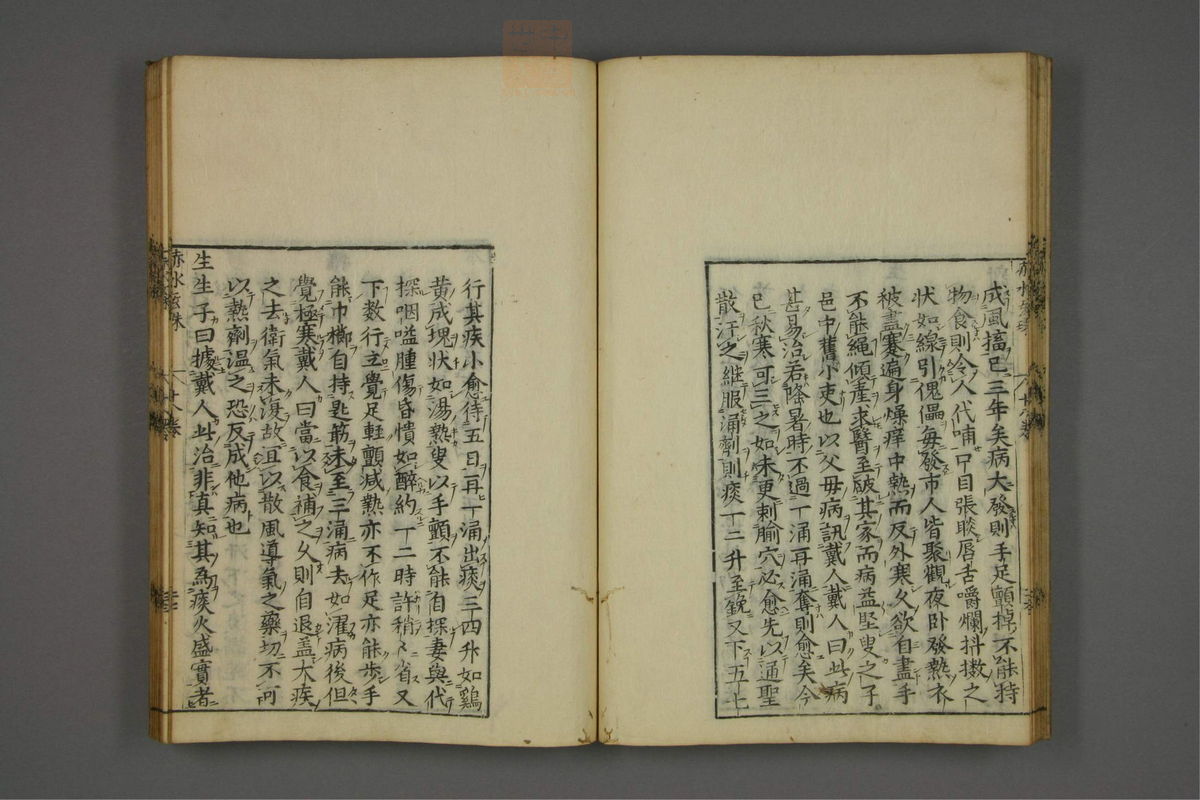 成風搐已三年矣病大發則手足顫掉不能持
物食則令人代哺口目張睒唇舌嚼爛抖擻之
狀如線引傀儡每發市人皆聚觀夜卧發熱衣
被盡蹇遍身燥痒中熱而反外寒久欲自盡手
不能繩傾產求醫至破其家而病益堅叟之子
邑中舊小吏也以父母病訊戴人戴人曰此病
甚易治若隆暑時不過一涌再涌奪則愈矣今
已秋寒可三之如未更刺腧穴必愈先以通聖
散汗之継服涌劑則痰一二升至晚又下五七
行其疾小愈待五日再一涌出痰三四升如鷄
黄成塊狀如湯熱叟以手顫不能自探妻與代
探咽嗌腫傷昏憒如醉約一二時許稍〻省又
下数行立覺足軽顫减熱亦不作足亦能歩手
能巾櫛自持匙筯未至三涌病去如濯病後但
覺極寒戴人曰當以食補之久則自退盖大疾
之去衛氣未復故宜以散風導氣之藥切不可
以熱劑温之恐反成他病也
生生子曰據戴人此治非真知其為痰火盛實者
赤水玄珠